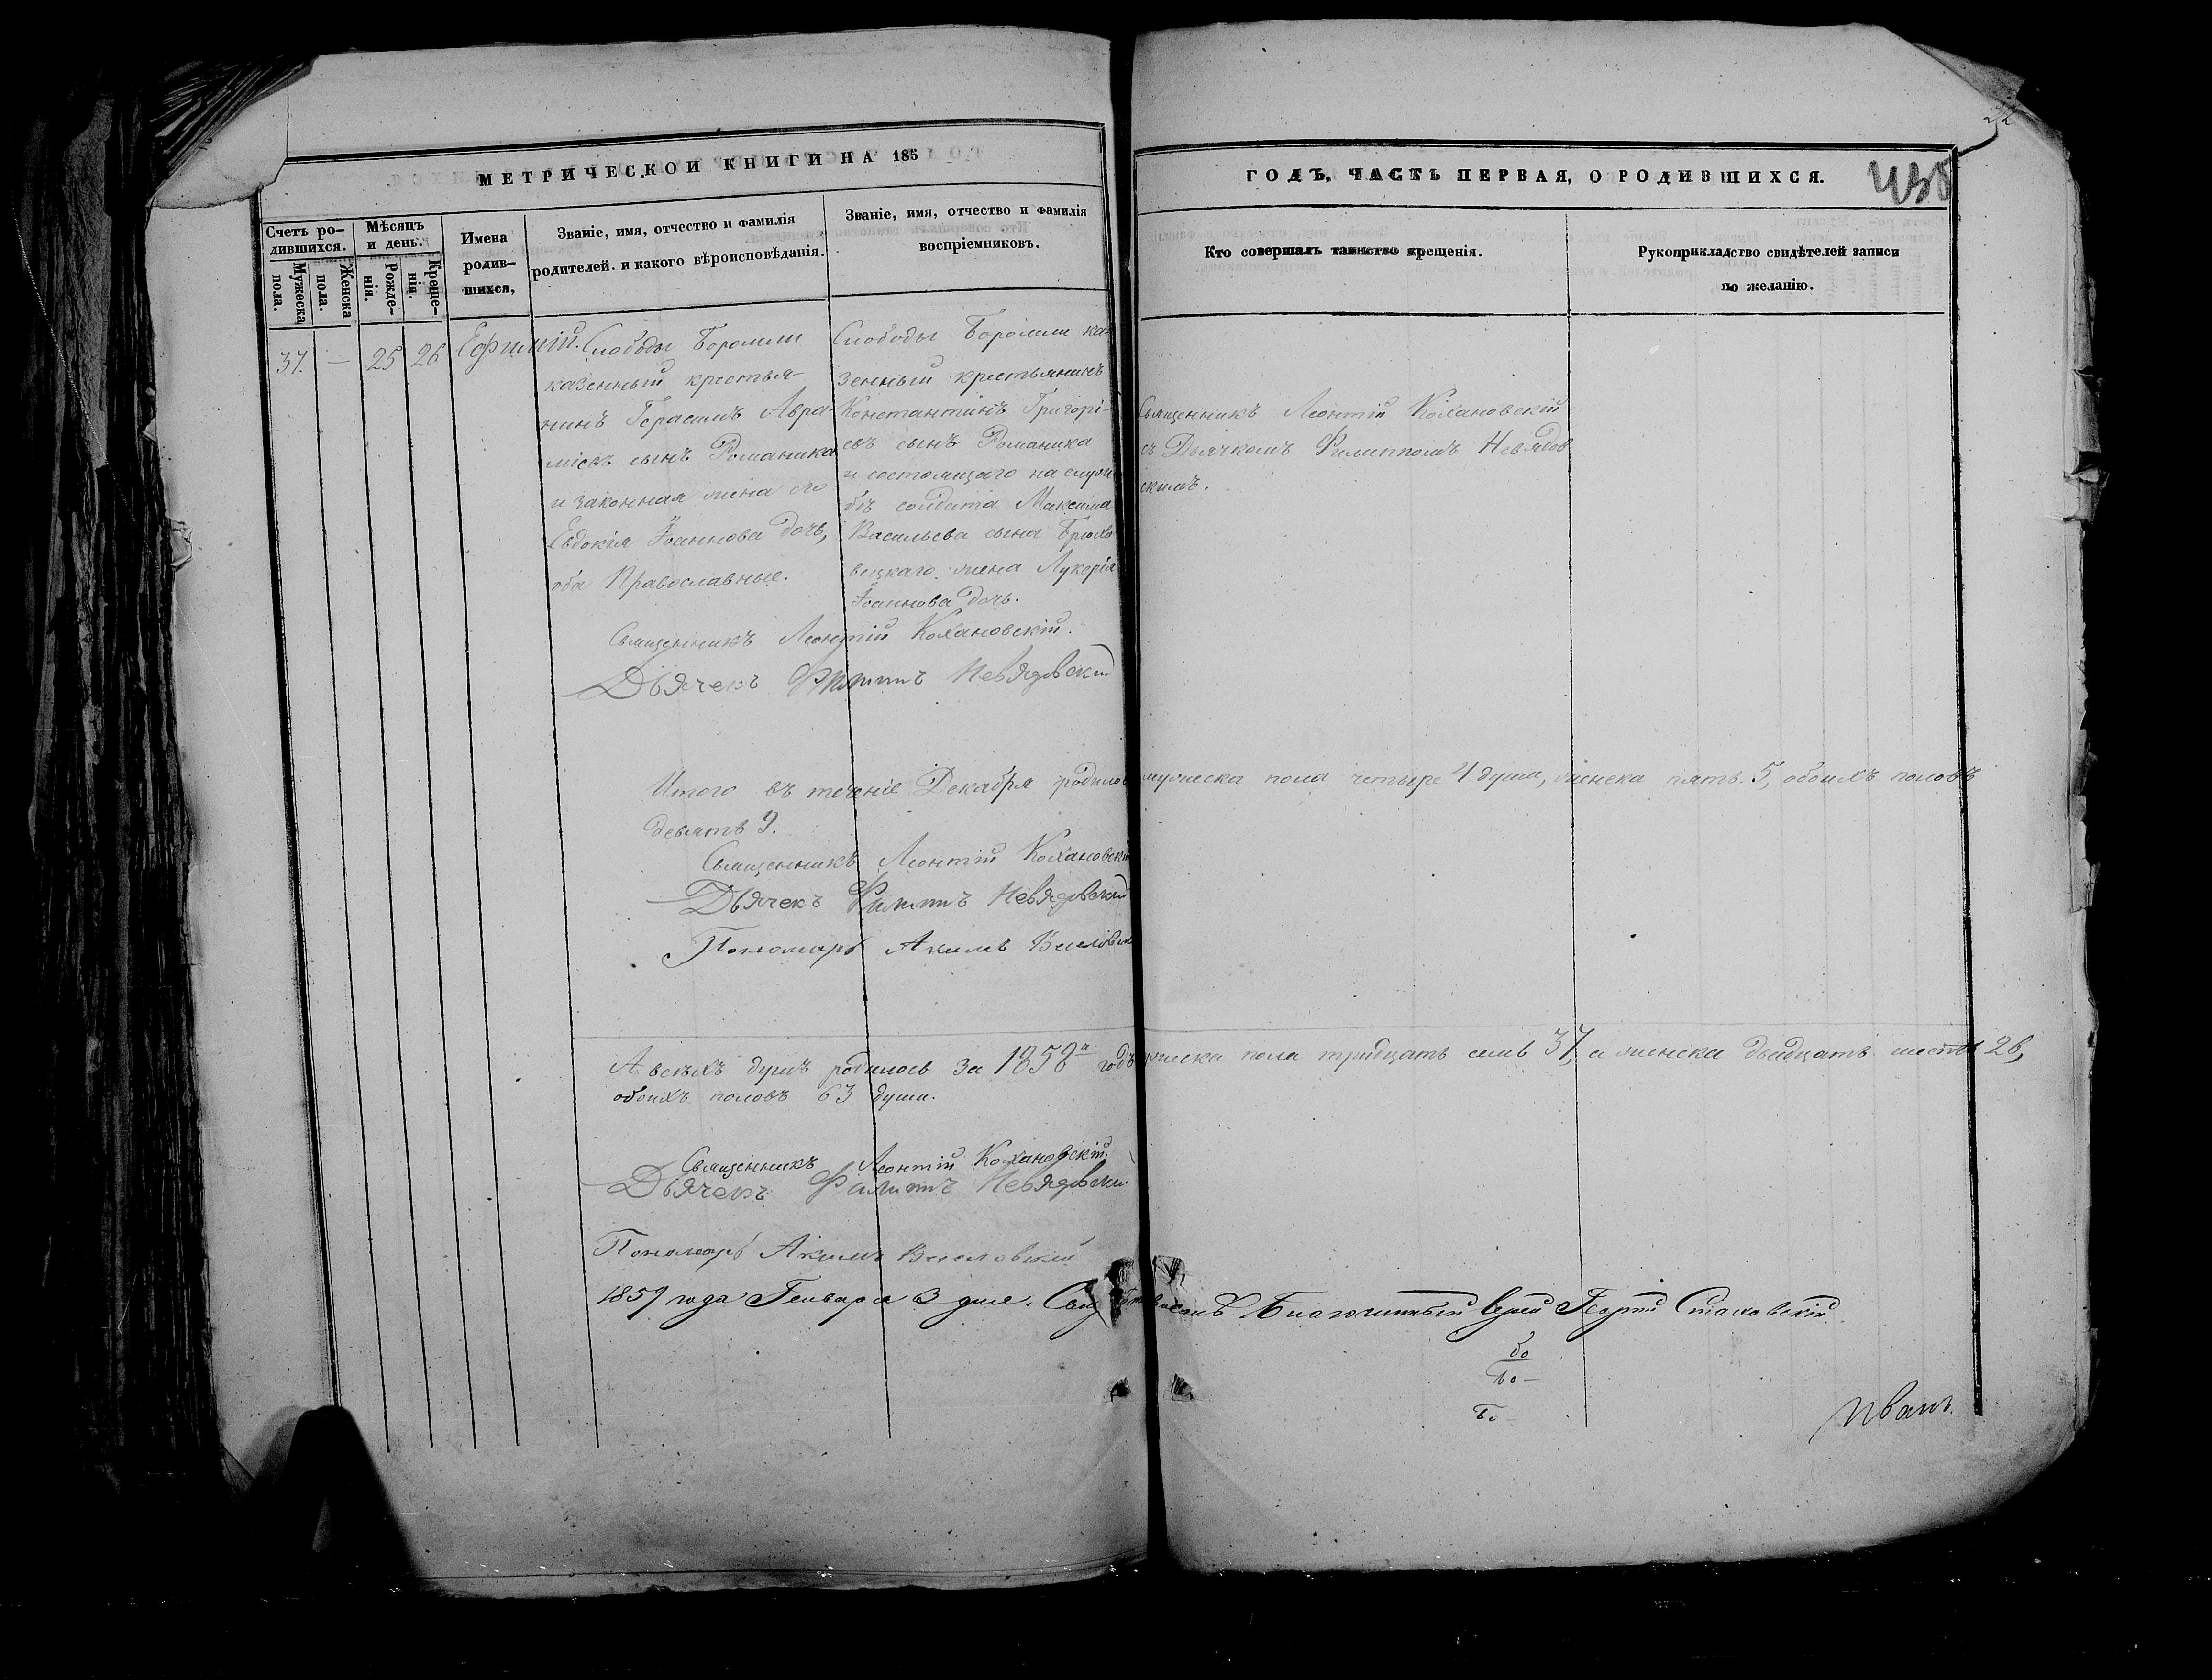 МЕТРИЧЕСКОЙ КНИГИ НА 185
Счетъ ро-
дившихся.
Мужеска
пола.
Женска
пола.
Мѣсяцъ
и день.
Рожде-
нія.
Креще-
нія.
Имена
родив-
шихся,
Званіе, имя, отчество и фамилія
родителей. и какого вѣроисповѣданія.
Званіе, имя, отчество и фамилія
воспріемниковъ.
37. — 25 26 Ефимій.
Слободы Боромли
казенный крестья-
нинъ Герасимъ Авра-
міевъ сынъ Романика
и законная жена его
Евдокія Іоаннова дочь,
оба Православные.
Слободы Боромли ка-
зенный крестьянинъ
Константинъ Григорі-
евъ сынъ Романика
и состоящаго на служ
бѣ солдата Максима
Васильева сына Брюхо
вецкаго жена Лукерія
Іоаннова дочь.
Священникъ Леонтій Кохановскій.
Дьячекъ Филиппъ Невядовскій
Итого въ теченіе Декабря родилось
девять 9.
Священникъ Леонтій Кохановскій
Дьячекъ Филиппъ Невядовскій
Пономарь Акимъ
А всѣхъ душъ родилось за 1858й годъ
обоихъ половъ 63 души.
Священникъ Леонтій Кохановскій.
Дьячекъ Филиппъ Невядовскій
Пономарь Акимъ
1859 года Генваря 3 дня.
ГОДЪ, ЧАСТЬ ПЕРВАЯ, О РОДИВШИХСЯ.
Кто совершалъ таинство крещенія.
Рукоприкладство свидѣтелей записи
по желанію.
Священникъ Леонтій Кохановскій
съ Дьячкомъ Филиппомъ Невядов
скимъ.
мужеска пола четыре 4 души, женска пять 5, обоихъ половъ
мужеска пола тридцать семь 37, а женска двадцать шесть 26,
Благочинный Іерей Георгій
Иванъ